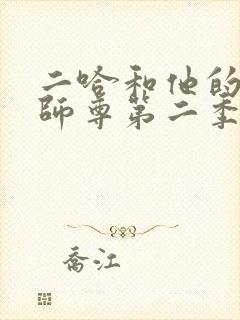 二哈和他的
師尊第二季
喬江